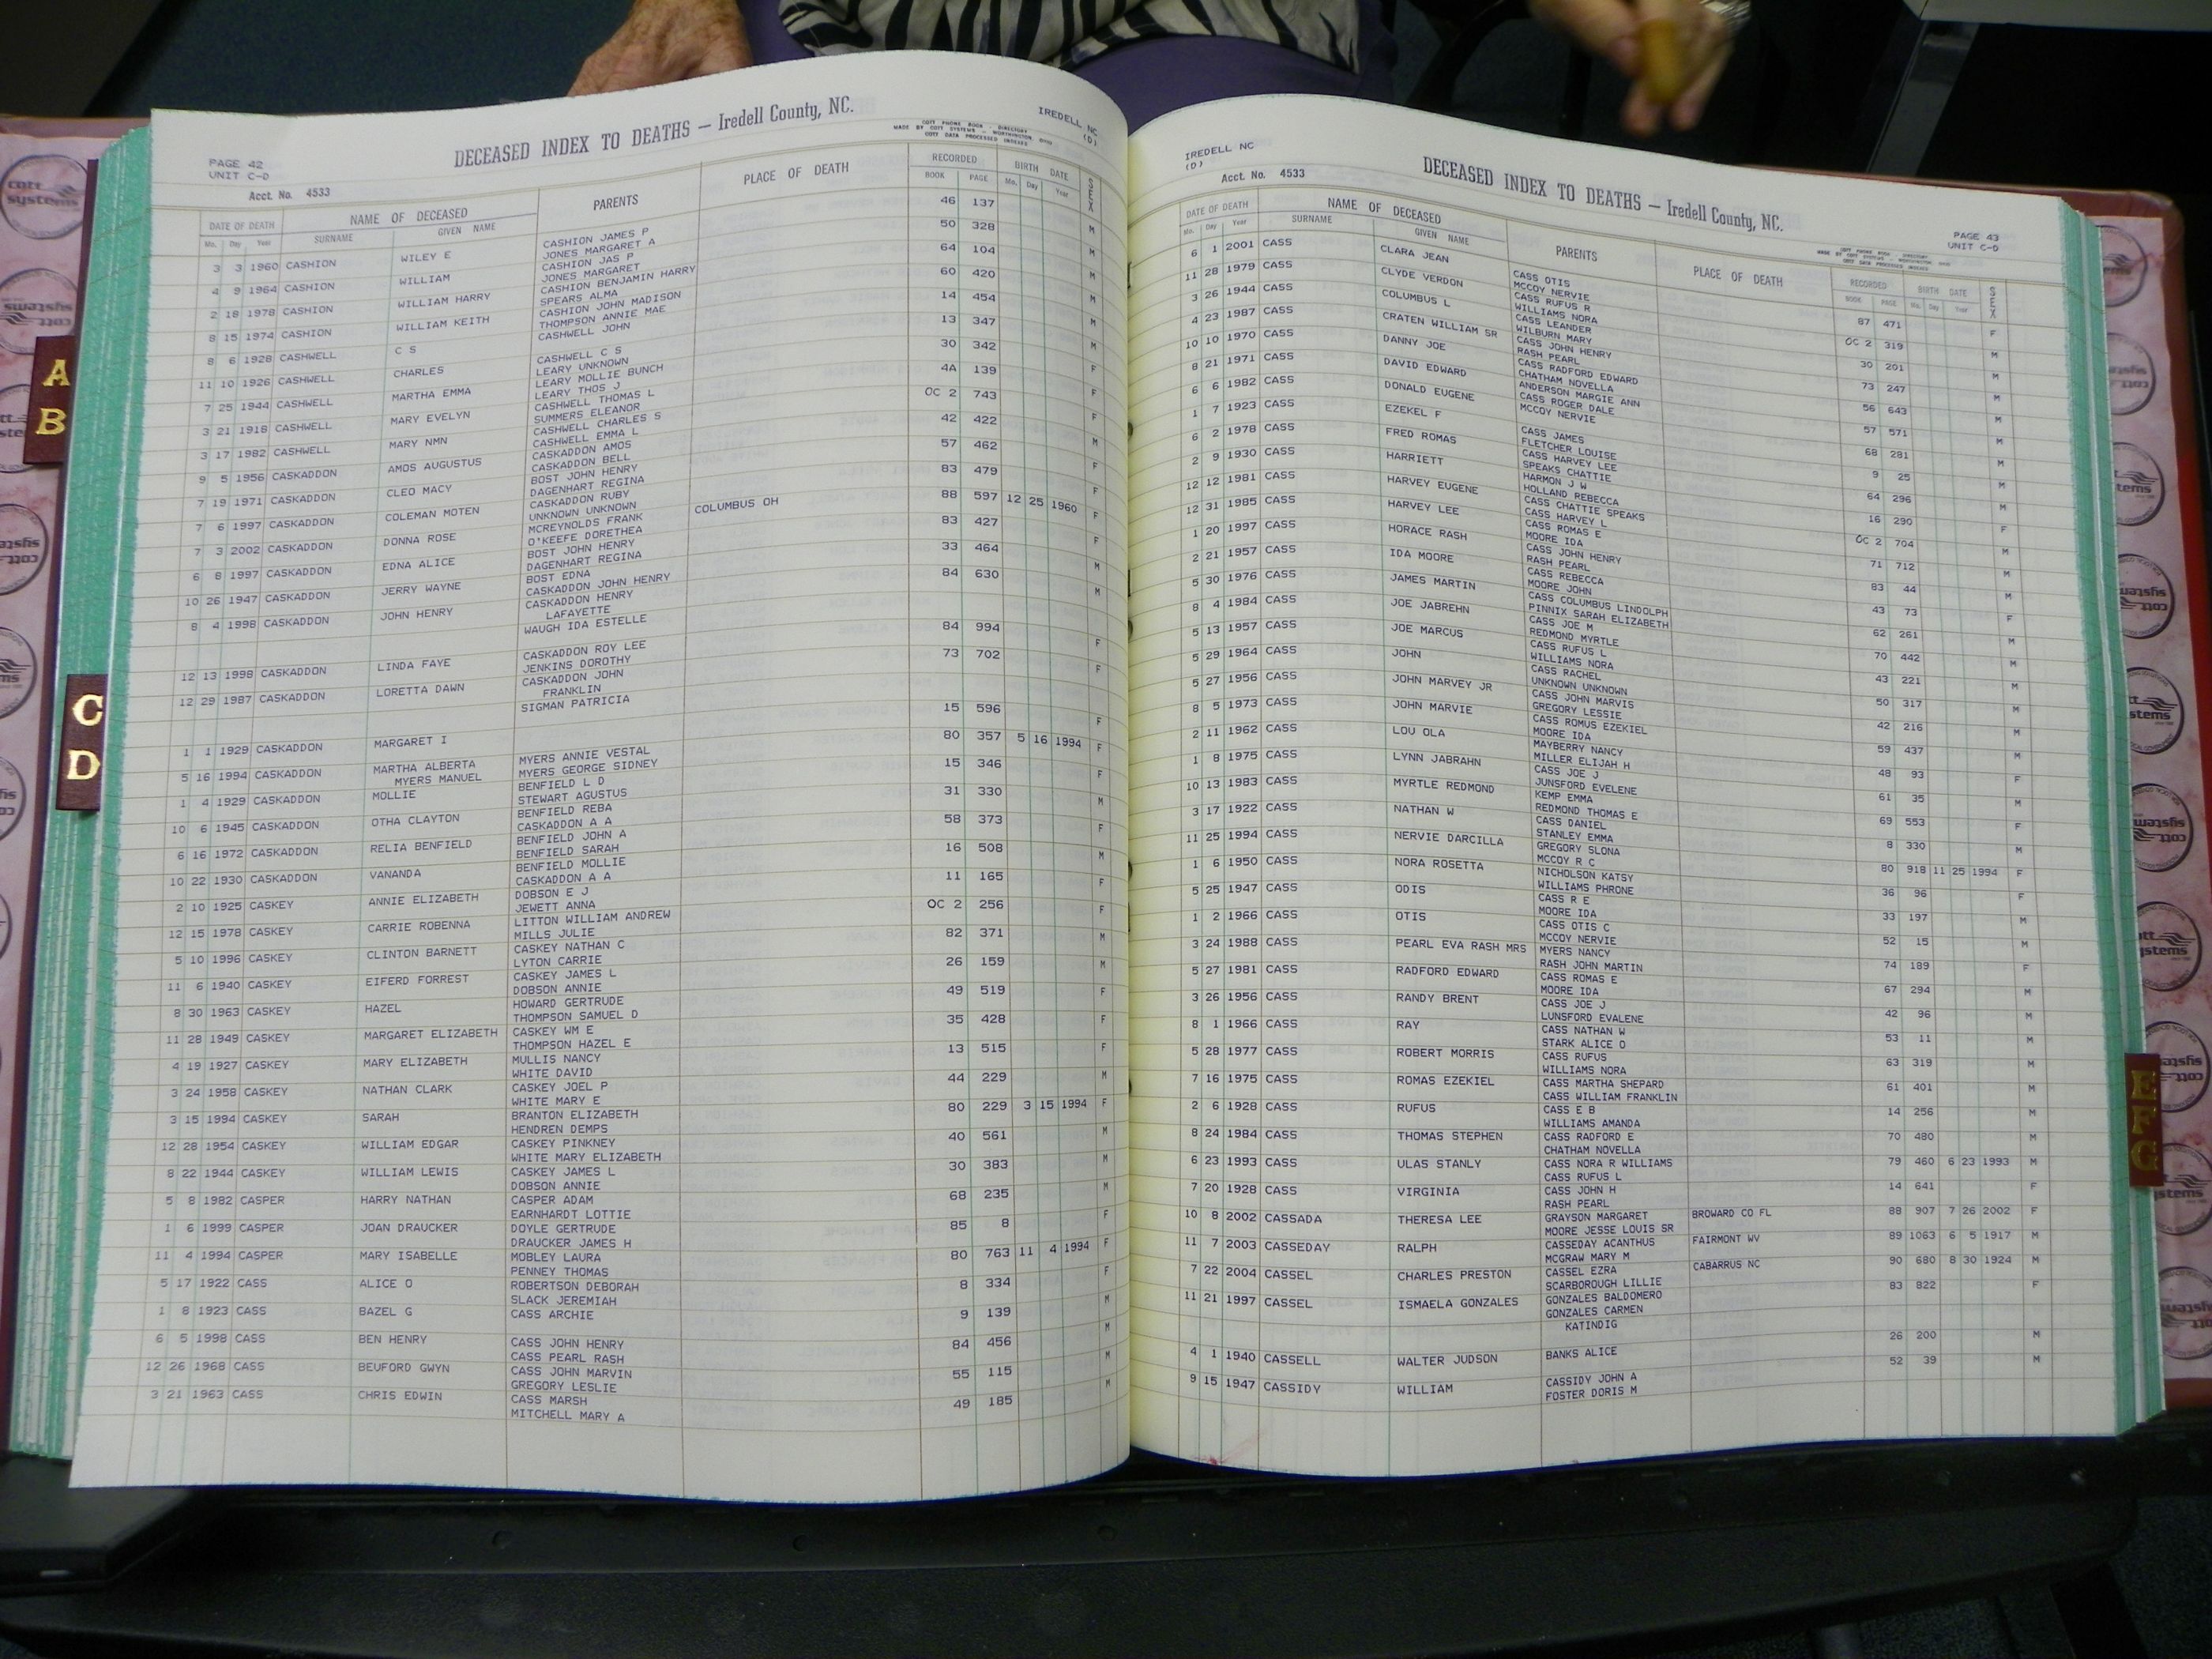 PAGE 42
UNIT C-D
DECEASED INDEX TO DEATHS — Iredell County, NC.
IREDELL NC
(D)
COTT PHONE BOOK - DIRECTORY
MADE BY COTT SYSTEMS - WORTHINGTON, OHIO
COTT DATA PROCESSED INDEXES
Acct. No. 4533
DATE OF DEATH NAME OF DECEASED PARENTS PLACE OF DEATH RECORDED BIRTH DATE SEX
Mo. Day Year SURNAME GIVEN NAME BOOK PAGE Mo. Day Year
3 3 1960 CASHION WILEY E CASHION JAMES P 46 137 M
JONES MARGARET A
4 9 1964 CASHION WILLIAM CASHION JAS P 50 328 M
JONES MARGARET
2 18 1978 CASHION WILLIAM HARRY CASHION BENJAMIN HARRY 64 104 M
SPEARS ALMA
8 15 1974 CASHION WILLIAM KEITH CASHION JOHN MADISON 60 420 M
THOMPSON ANNIE MAE
8 6 1928 CASHWELL C S CASHWELL JOHN 14 454 M
11 10 1926 CASHWELL CHARLES CASHWELL C S 13 347 M
LEARY UNKNOWN
7 25 1944 CASHWELL MARTHA EMMA LEARY MOLLIE BUNCH 30 342 F
LEARY THOS J
3 21 1918 CASHWELL MARY EVELYN CASHWELL THOMAS L 4A 139 F
SUMMERS ELEANOR
3 17 1982 CASHWELL MARY NMN CASHWELL CHARLES S OC 2 743 F
CASHWELL EMMA L
9 5 1956 CASKADDON AMOS AUGUSTUS CASKADDON AMOS 42 422 M
CASKADDON BELL
7 19 1971 CASKADDON CLEO MACY BOST JOHN HENRY 57 462 F
DAGENHART REGINA
7 6 1997 CASKADDON COLEMAN MOTEN CASKADDON RUBY 83 479 F
UNKNOWN UNKNOWN
7 3 2002 CASKADDON DONNA ROSE MCREYNOLDS FRANK COLUMBUS OH 88 597 12 25 1960 F
O'KEEFE DORETHEA
6 8 1997 CASKADDON EDNA ALICE BOST JOHN HENRY 83 427 F
DAGENHART REGINA
10 26 1947 CASKADDON JERRY WAYNE BOST EDNA 33 464 M
CASKADDON JOHN HENRY
8 4 1998 CASKADDON JOHN HENRY CASKADDON HENRY 84 630 M
LAFAYETTE
WAUGH IDA ESTELLE
12 13 1998 CASKADDON LINDA FAYE CASKADDON ROY LEE 84 994 F
JENKINS DOROTHY
12 29 1987 CASKADDON LORETTA DAWN CASKADDON JOHN 73 702 F
FRANKLIN
SIGMAN PATRICIA
1 1 1929 CASKADDON MARGARET I 15 596 F
5 16 1994 CASKADDON MARTHA ALBERTA MYERS ANNIE VESTAL 80 357 5 16 1994 F
MYERS MANUEL MYERS GEORGE SIDNEY
1 4 1929 CASKADDON MOLLIE BENFIELD L D 15 346 F
STEWART AGUSTUS
10 6 1945 CASKADDON OTHA CLAYTON BENFIELD REBA 31 330 M
CASKADDON A A
6 16 1972 CASKADDON RELIA BENFIELD BENFIELD JOHN A 58 373 F
BENFIELD SARAH
10 22 1930 CASKADDON VANANDA BENFIELD MOLLIE 16 508 M
CASKADDON A A
2 10 1925 CASKEY ANNIE ELIZABETH DOBSON E J 11 165 F
JEWETT ANNA
12 15 1978 CASKEY CARRIE ROBENNA LITTON WILLIAM ANDREW OC 2 256 F
MILLS JULIE
5 10 1996 CASKEY CLINTON BARNETT CASKEY NATHAN C 82 371 M
LYTON CARRIE
11 6 1940 CASKEY EIFERD FORREST CASKEY JAMES L 26 159 M
DOBSON ANNIE
8 30 1963 CASKEY HAZEL HOWARD GERTRUDE 49 519 F
THOMPSON SAMUEL D
11 28 1949 CASKEY MARGARET ELIZABETH CASKEY WM E 35 428 F
THOMPSON HAZEL E
4 19 1927 CASKEY MARY ELIZABETH MULLIS NANCY 13 515 F
WHITE DAVID
3 24 1958 CASKEY NATHAN CLARK CASKEY JOEL P 44 229 M
WHITE MARY E
3 15 1994 CASKEY SARAH BRANTON ELIZABETH 80 229 3 15 1994 F
HENDREN DEMPS
12 28 1954 CASKEY WILLIAM EDGAR CASKEY PINKNEY 40 561 M
WHITE MARY ELIZABETH
8 22 1944 CASKEY WILLIAM LEWIS CASKEY JAMES L 30 383 M
DOBSON ANNIE
5 8 1982 CASPER HARRY NATHAN CASPER ADAM 68 235 M
EARNHARDT LOTTIE
1 6 1999 CASPER JOAN DRAUCKER DOYLE GERTRUDE 85 8 F
DRAUCKER JAMES H
11 4 1994 CASPER MARY ISABELLE MOBLEY LAURA 80 763 11 4 1994 F
PENNEY THOMAS
5 17 1922 CASS ALICE O ROBERTSON DEBORAH 8 334 F
SLACK JEREMIAH
1 8 1923 CASS BAZEL G CASS ARCHIE 9 139 M
6 5 1998 CASS BEN HENRY CASS JOHN HENRY 84 456 M
CASS PEARL RASH
12 26 1968 CASS BEUFORD GWYN CASS JOHN MARVIN 55 115 M
GREGORY LESLIE
3 21 1963 CASS CHRIS EDWIN CASS MARSH 49 185 M
MITCHELL MARY A
IREDELL NC
(D)
Acct. No. 4533
DECEASED INDEX TO DEATHS — Iredell County, NC.
PAGE 43
UNIT C-D
DATE OF DEATH NAME OF DECEASED PARENTS PLACE OF DEATH RECORDED BIRTH DATE SEX
Mo. Day Year SURNAME GIVEN NAME BOOK PAGE Mo. Day Year
6 1 2001 CASS CLARA JEAN CASS OTIS 87 471 F
MCCOY NERVIE
11 28 1979 CASS CLYDE VERDON CASS RUFUS R OC 2 319 M
WILLIAMS NORA
3 26 1944 CASS COLUMBUS L CASS LEANDER 30 201 M
WILBURN MARY
4 23 1987 CASS CRATEN WILLIAM SR CASS JOHN HENRY 73 247 M
RASH PEARL
10 10 1970 CASS DANNY JOE CASS RADFORD EDWARD 56 643 M
CHATHAM NOVELLA
8 21 1971 CASS DAVID EDWARD ANDERSON MARGIE ANN 57 571 M
CASS ROGER DALE
6 6 1982 CASS DONALD EUGENE MCCOY NERVIE 68 281 M
1 7 1923 CASS EZEKEL F CASS JAMES 9 25 M
FLETCHER LOUISE
6 2 1978 CASS FRED ROMAS CASS HARVEY LEE 64 296
SPEAKS CHATTIE
2 9 1930 CASS HARRIETT HARMON J W 16 290 F
HOLLAND REBECCA
12 12 1981 CASS HARVEY EUGENE CASS CHATTIE SPEAKS OC 2 704 M
CASS HARVEY L
12 31 1985 CASS HARVEY LEE CASS ROMAS E 71 712 M
MOORE IDA
1 20 1997 CASS HORACE RASH CASS JOHN HENRY 83 44 M
RASH PEARL
2 21 1957 CASS IDA MOORE CASS REBECCA 43 73 F
MOORE JOHN
5 30 1976 CASS JAMES MARTIN CASS COLUMBUS LINDOLPH 62 261 M
PINNIX SARAH ELIZABETH
8 4 1984 CASS JOE JABREHN CASS JOE M 70 442 M
REDMOND MYRTLE
5 13 1957 CASS JOE MARCUS CASS RUFUS L 43 221 M
WILLIAMS NORA
5 29 1964 CASS JOHN CASS RACHEL 50 317 M
UNKNOWN UNKNOWN
5 27 1956 CASS JOHN MARVEY JR CASS JOHN MARVIS 42 216 M
GREGORY LESSIE
8 5 1973 CASS JOHN MARVIE CASS ROMUS EZEKIEL 59 437 M
MOORE IDA
2 11 1962 CASS LOU OLA MAYBERRY NANCY 48 93 F
MILLER ELIJAH H
1 8 1975 CASS LYNN JABRAHN CASS JOE J 61 35 M
JUNSFORD EVELENE
10 13 1983 CASS MYRTLE REDMOND KEMP EMMA 69 553 F
REDMOND THOMAS E
3 17 1922 CASS NATHAN W CASS DANIEL 8 330 M
STANLEY EMMA
11 25 1994 CASS NERVIE DARCILLA GREGORY SLONA 80 918 11 25 1994 F
MCCOY R C
1 6 1950 CASS NORA ROSETTA NICHOLSON KATSY 36 96 F
WILLIAMS PHRONE
5 25 1947 CASS ODIS CASS R E 33 197 M
MOORE IDA
1 2 1966 CASS OTIS CASS OTIS C 52 15 M
MCCOY NERVIE
3 24 1988 CASS PEARL EVA RASH MRS MYERS NANCY 74 189 F
RASH JOHN MARTIN
5 27 1981 CASS RADFORD EDWARD CASS ROMAS E 67 294 M
MOORE IDA
3 26 1956 CASS RANDY BRENT CASS JOE J 42 96 M
LUNSFORD EVALENE
8 1 1966 CASS RAY CASS NATHAN W 53 11 M
STARK ALICE O
5 28 1977 CASS ROBERT MORRIS CASS RUFUS 63 319 M
WILLIAMS NORA
7 16 1975 CASS ROMAS EZEKIEL CASS MARTHA SHEPARD 61 401 M
CASS WILLIAM FRANKLIN
2 6 1928 CASS RUFUS CASS E B 14 256 M
WILLIAMS AMANDA
8 24 1984 CASS THOMAS STEPHEN CASS RADFORD E 70 480 M
CHATHAM NOVELLA
6 23 1993 CASS ULAS STANLY CASS NORA R WILLIAMS 79 460 6 23 1993 M
CASS RUFUS L
7 20 1928 CASS VIRGINIA CASS JOHN H 14 641 F
RASH PEARL
10 8 2002 CASSADA THERESA LEE GRAYSON MARGARET BROWARD CO FL 88 907 7 26 2002 F
MOORE JESSE LOUIS SR
11 7 2003 CASSEDAY RALPH CASSEDAY ACANTHUS FAIRMONT WV 89 1063 6 5 1917 M
MCGRAW MARY M
7 22 2004 CASSEL CHARLES PRESTON CASSEL EZRA CABARRUS NC 90 680 8 30 1924 M
SCARBOROUGH LILLIE
11 21 1997 CASSEL ISMAELA GONZALES GONZALES BALDOMERO 83 822 F
GONZALES CARMEN
KATINDIG
4 1 1940 CASSELL WALTER JUDSON BANKS ALICE 26 200 M
9 15 1947 CASSIDY WILLIAM CASSIDY JOHN A 52 39 M
FOSTER DORIS M
A
B
C
D
E
F
G
cott
systems